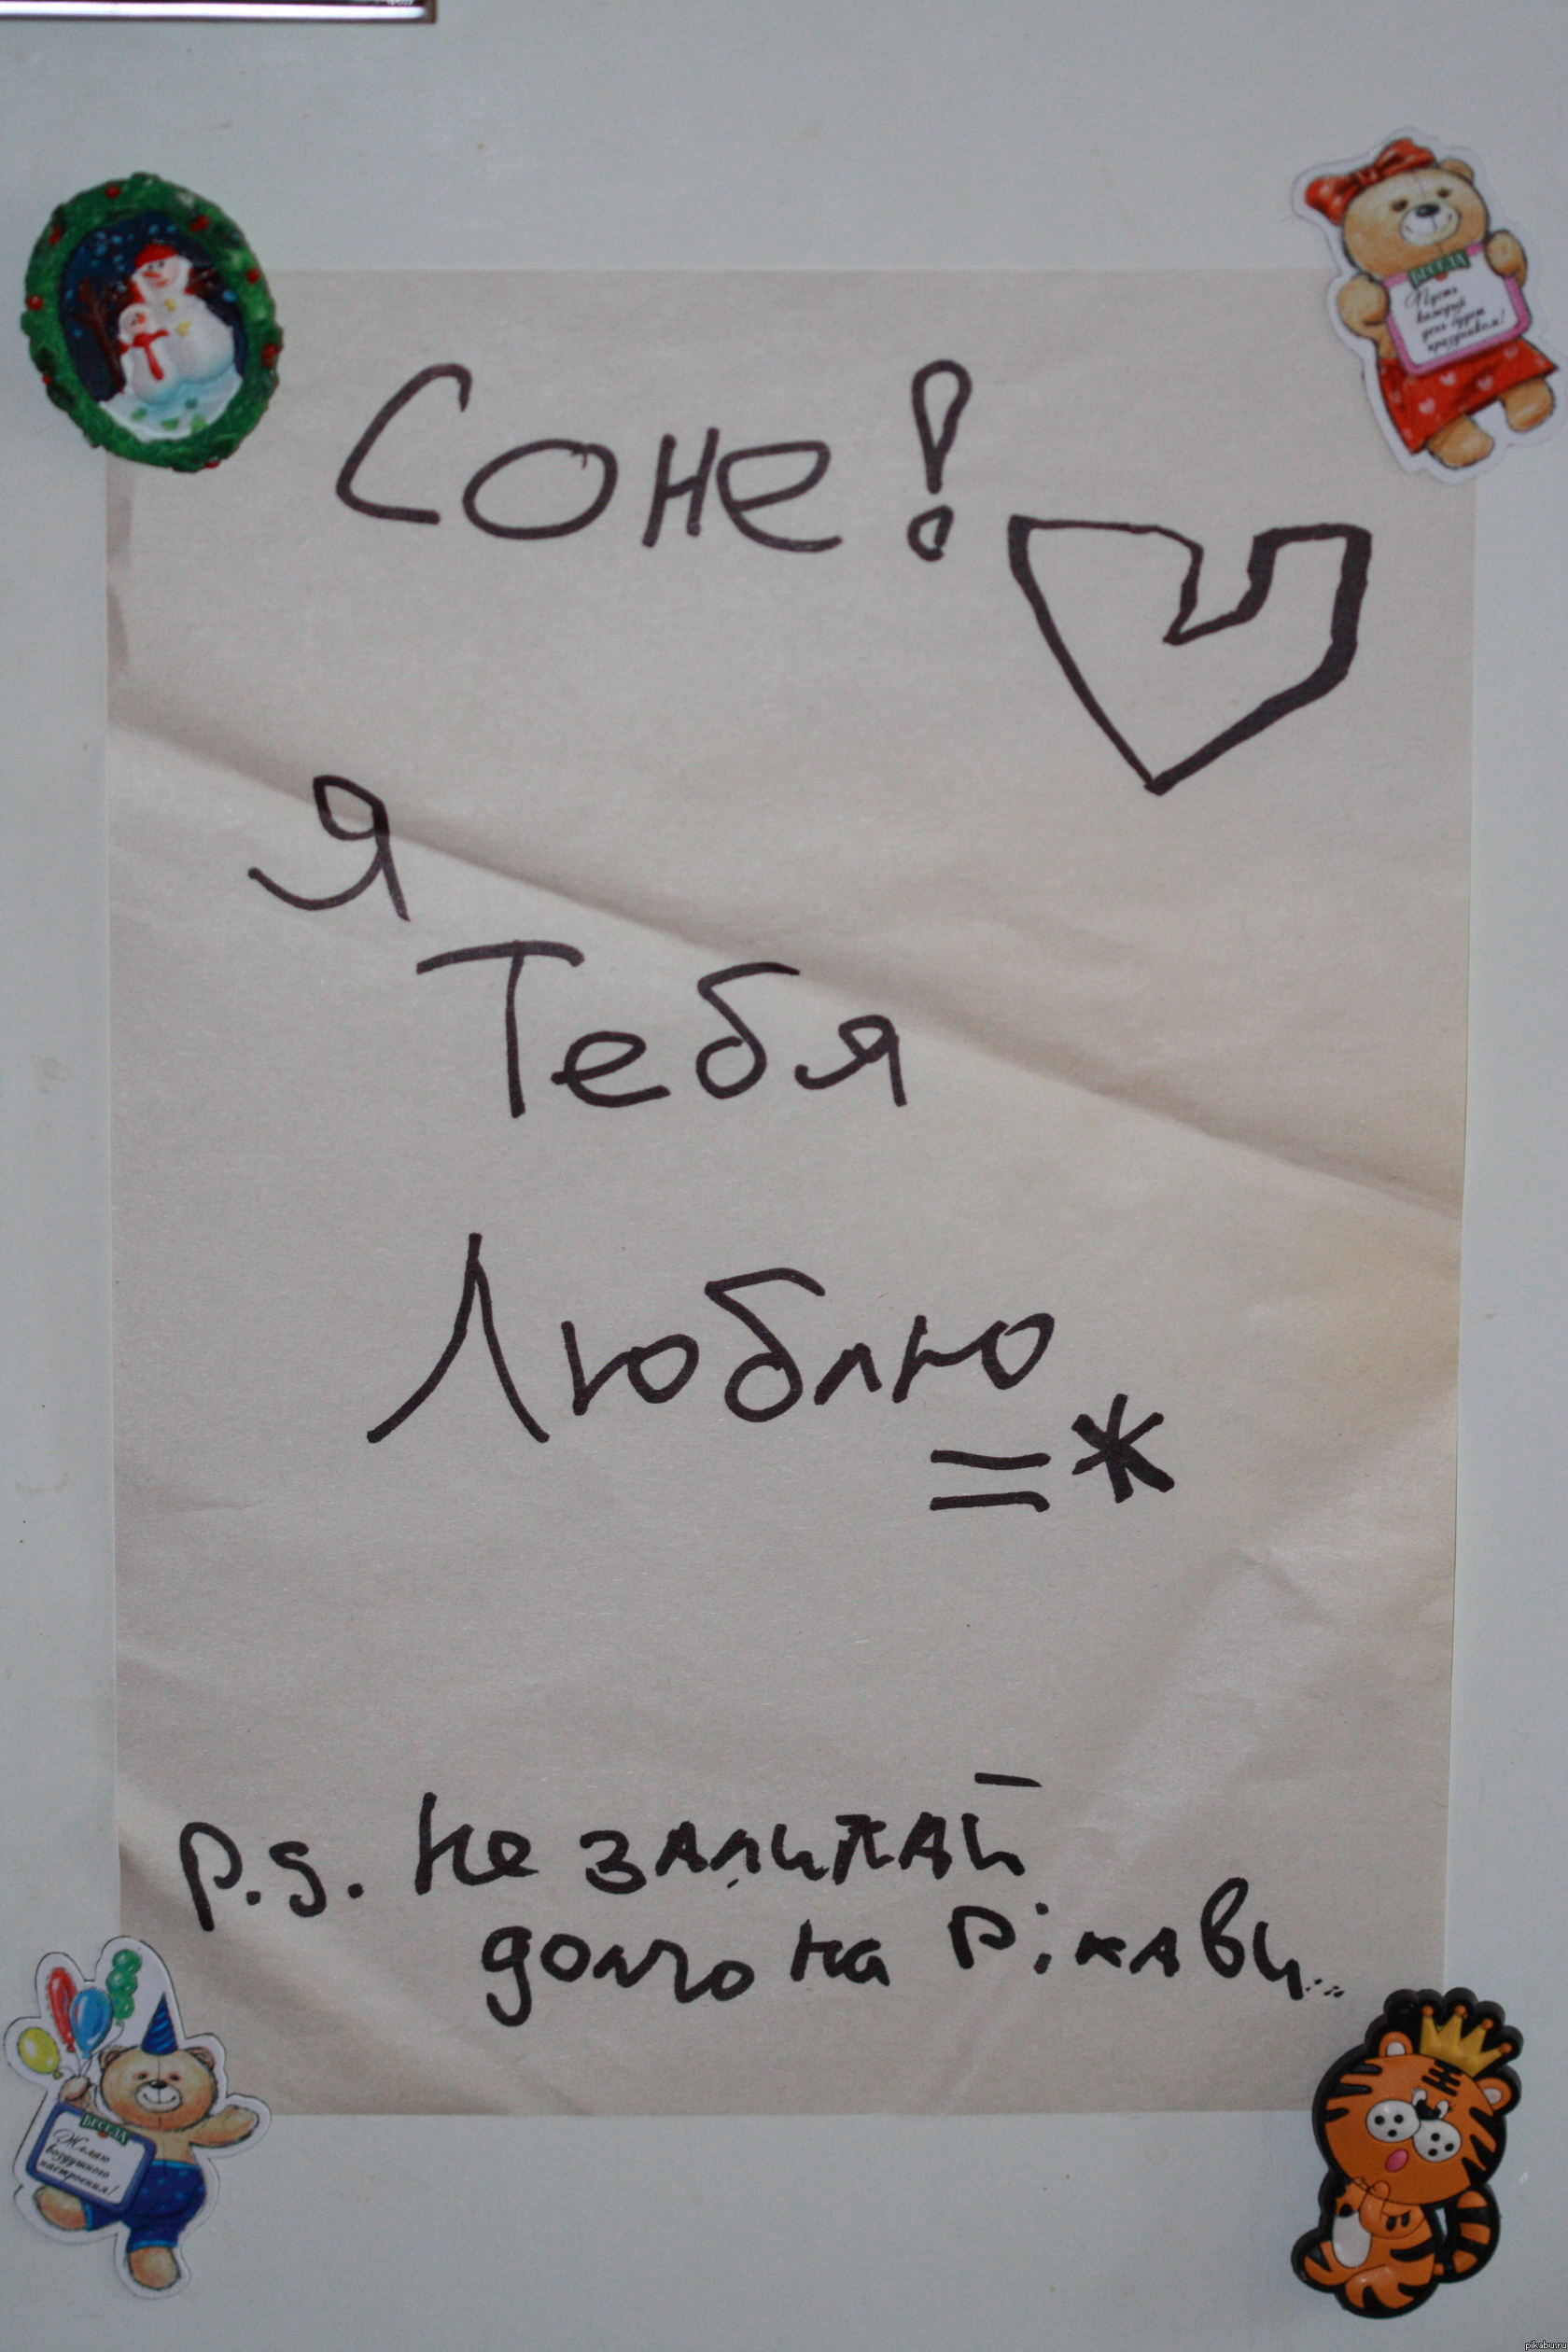 БЕСЕДА
Пусть
каждый
день будет
праздником!
Соне!
Я
Тебя
Люблю
=*
P.S. Не залипай
долго на Pikaви...
БЕСЕДА
Желаю
воздушного
настроения!
pikabu.ru